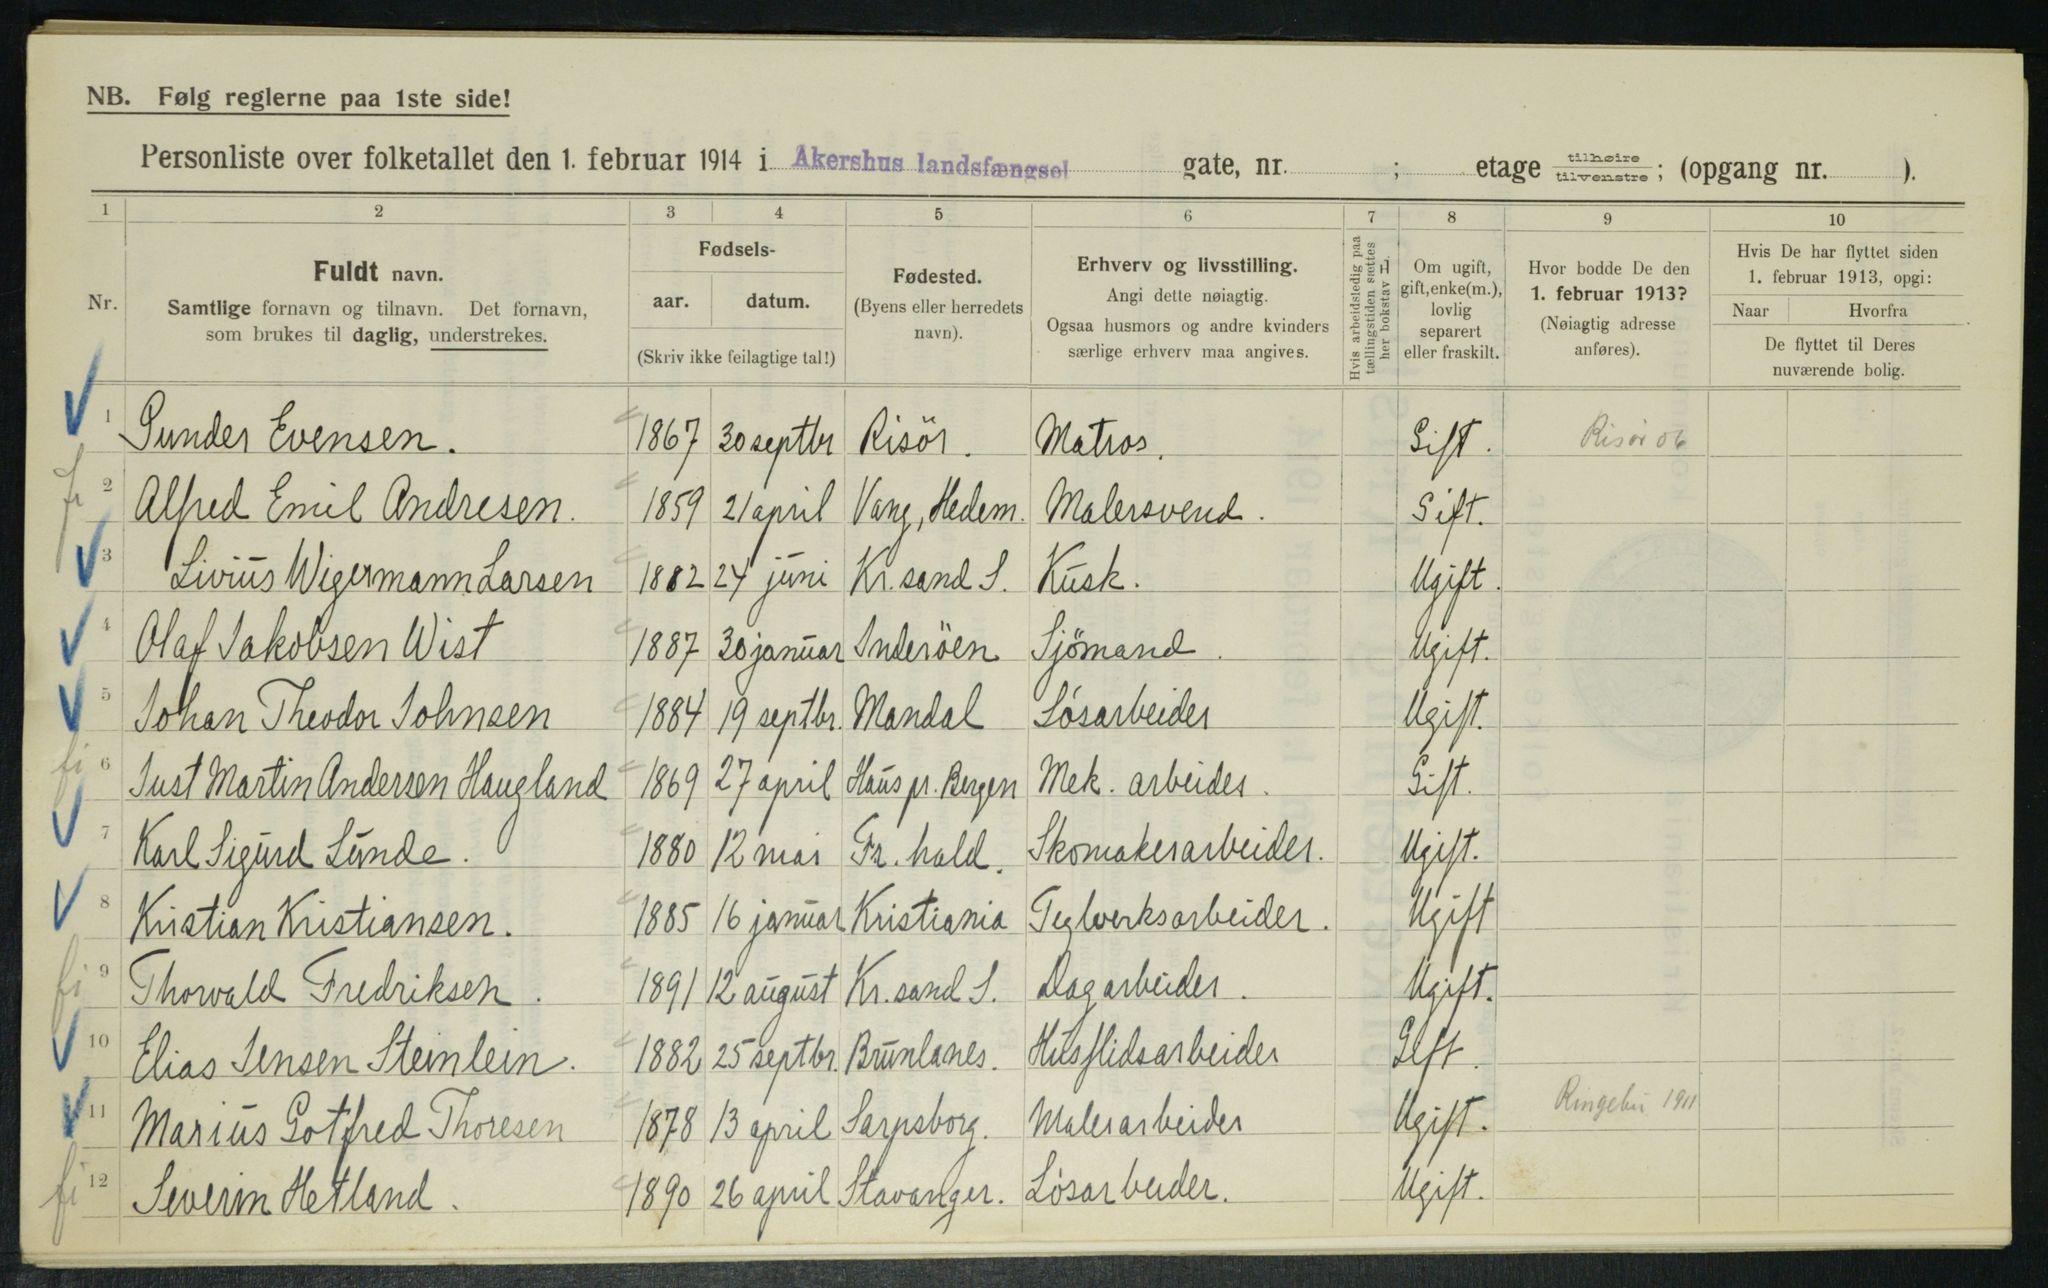 NB. Følg reglerne paa 1ste side!
Personliste over folketallet den 1. februar 1914 i Akershus landsfængsel gate, nr. ; etage tilhøire tilvenstre; (opgang nr. ).
1 2 3 4 5 6 7 8 9 10
Nr.
Fuldt navn.
Samtlige fornavn og tilnavn. Det fornavn,
som brukes til daglig, understrekes.
Fødsels-
aar. datum.
(Skriv ikke feilagtige tal!)
Fødested.
(Byens eller herredets
navn).
Erhverv og livsstilling.
Angi dette nøiagtig.
Ogsaa husmors og andre kvinders
særlige erhverv maa angives.
Hvis arbeidsledig paa
tællingstiden sættes
her bokstav L.
Om ugift,
gift, enke(m.),
lovlig
separert
eller fraskilt.
Hvor bodde De den
1. februar 1913?
(Nøiagtig adresse
anføres).
Hvis De har flyttet siden
1. februar 1913, opgi:
Naar Hvorfra
De flyttet til Deres
nuværende bolig.
1 Gunder Evensen. 1867 30 septbr Risör. Matros. Gift. Risör 06
2 Alfred Emil Andresen. 1859 21 april Vang, Hedem. Malersvend. Gift.
3 Livius Wigermann Larsen 1882 24 juni Kr.sand S. Kusk. Ugift.
4 Olaf Jakobsen Wist 1887 30 januar Inderöen Sjömand. Ugift.
5 Johan Theodor Johnsen 1884 19 septbr. Mandal Lösarbeider Ugift.
fi 6 Just Martin Andersen Haugland 1869 27 april Haus pr. Bergen Mek. arbeider. Gift.
7 Karl Sigurd Lunde. 1880 12 mai Fr. hald. Skomakerarbeider. Ugift.
8 Kristian Kristiansen. 1885 16 januar Kristiania Teglverksarbeider. Ugift
fi 9 Thorvald Fredriksen. 1891 12 august Kr.sand S. Dagarbeider. Ugift.
10 Elias Jensen Steinlein. 1882 25 septbr. Brunlanes. Husflidsarbeider Gift.
11 Marius Gotfred Thoresen 1878 13 april Sarpsborg. Malerarbeider Ugift. Ringebu 1911
fi 12 Severin Hetland. 1890 26 april Stavanger. Lösarbeider. Ugift.